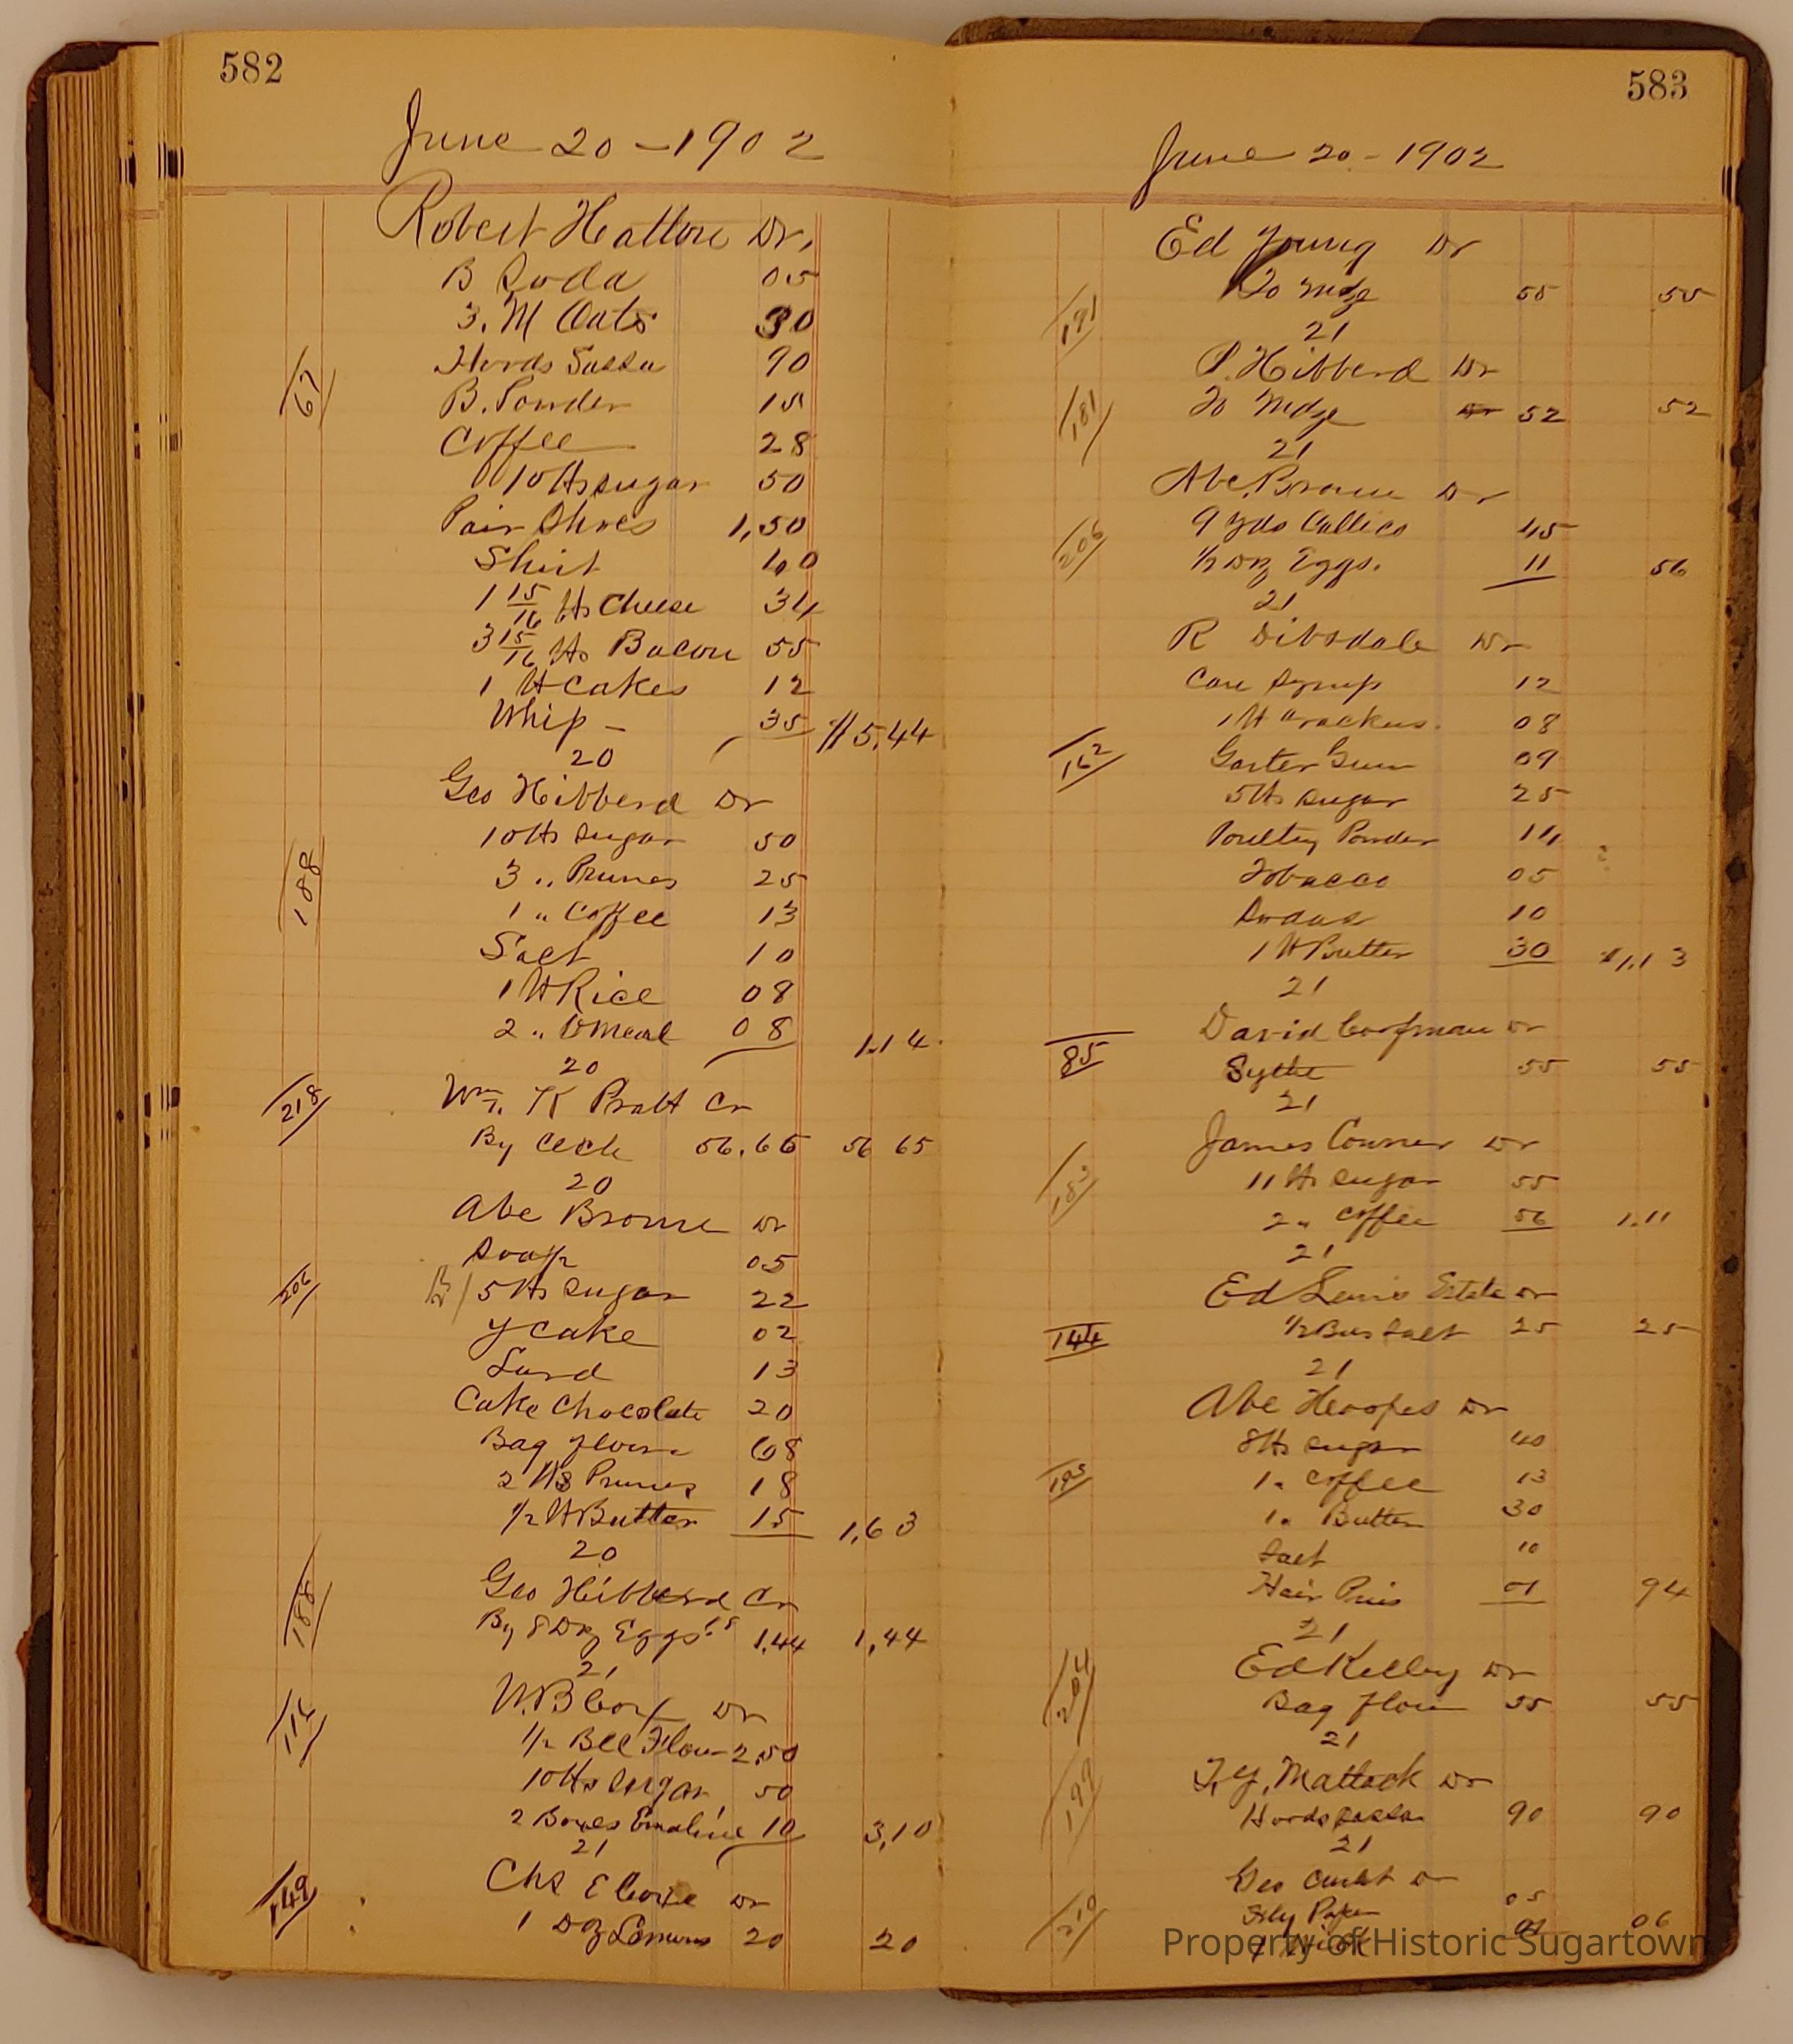 582
June 20 - 1902
Robert Hatton Dr.
B Soda 05
3. M Oats 30
Hords Sassa 90
B. Powder 15
Coffee 28
10 lbs sugar 50
Pair Shoes 1,50
Shirt 40
1 15/16 lbs Cheese 34
3 15/16 lbs Bacon 55
1 lb Cakes 12
Whip - 35 $5.44
67
20
Geo Hibberd Dr
10 lbs sugar 50
3 " Prunes 25
1 " Coffee 13
188
Salt 10
1 lb Rice 08
2 " Meal 08 1.14
20
218
Wm. K Pratt Cr
By Cash 56.65 56 65
20
Abe Brown Dr
Soap 05
206
5 lbs sugar 22
Y Cake 02
Lard 13
Cake Chocolate 20
Bag flour 68
2 lbs Prunes 18
1/2 lb Butter 15 1,63
20
188
Geo Hibberd Cr
By 8 Doz Eggs .18 1.44 1,44
21
W.B Cox Dr
114
1/2 Bbl Flour 2.50
10 lbs sugar 50
2 Boxes 10 3,10
21
149
Chs E Dr
1 Doz Lemons 20 20
583
June 20 - 1902
Ed Young Dr
To Mdze 55 55
191
21
P. Hibberd Dr
181
To Mdze 52 52
21
Abe. Brown Dr
9 yds Callico 45
206
1/2 Doz Eggs. 11 56
21
R Dibsdale Dr
Can Syrup 12
1 lb Crackers. 08
162
Garter Gum 09
5 lbs sugar 25
Poultry Powder 14
Tobacco 05
10
1 lb Butter 30 $1.13
21
David Coofman Dr
85
Sythe 55 55
21
James Conner Dr
11 lbs sugar 55
183
2 " Coffee 56 1.11
21
Ed Lewis Estate Dr
144
1/2 Bus Salt 25 25
21
Abe Hoopes Dr
8 lbs sugar 40
195
1 " Coffee 13
1 " Butter 30
Salt 10
Hair Pins 01 94
21
Ed Kelley Dr
204
Bag flour 55 55
21
T, Y, Mattack Dr
199
Hords sassa 90 90
21
Geo Dr
210
Fly Paper 05
1 Wick 01 06
Property of Historic Sugartown